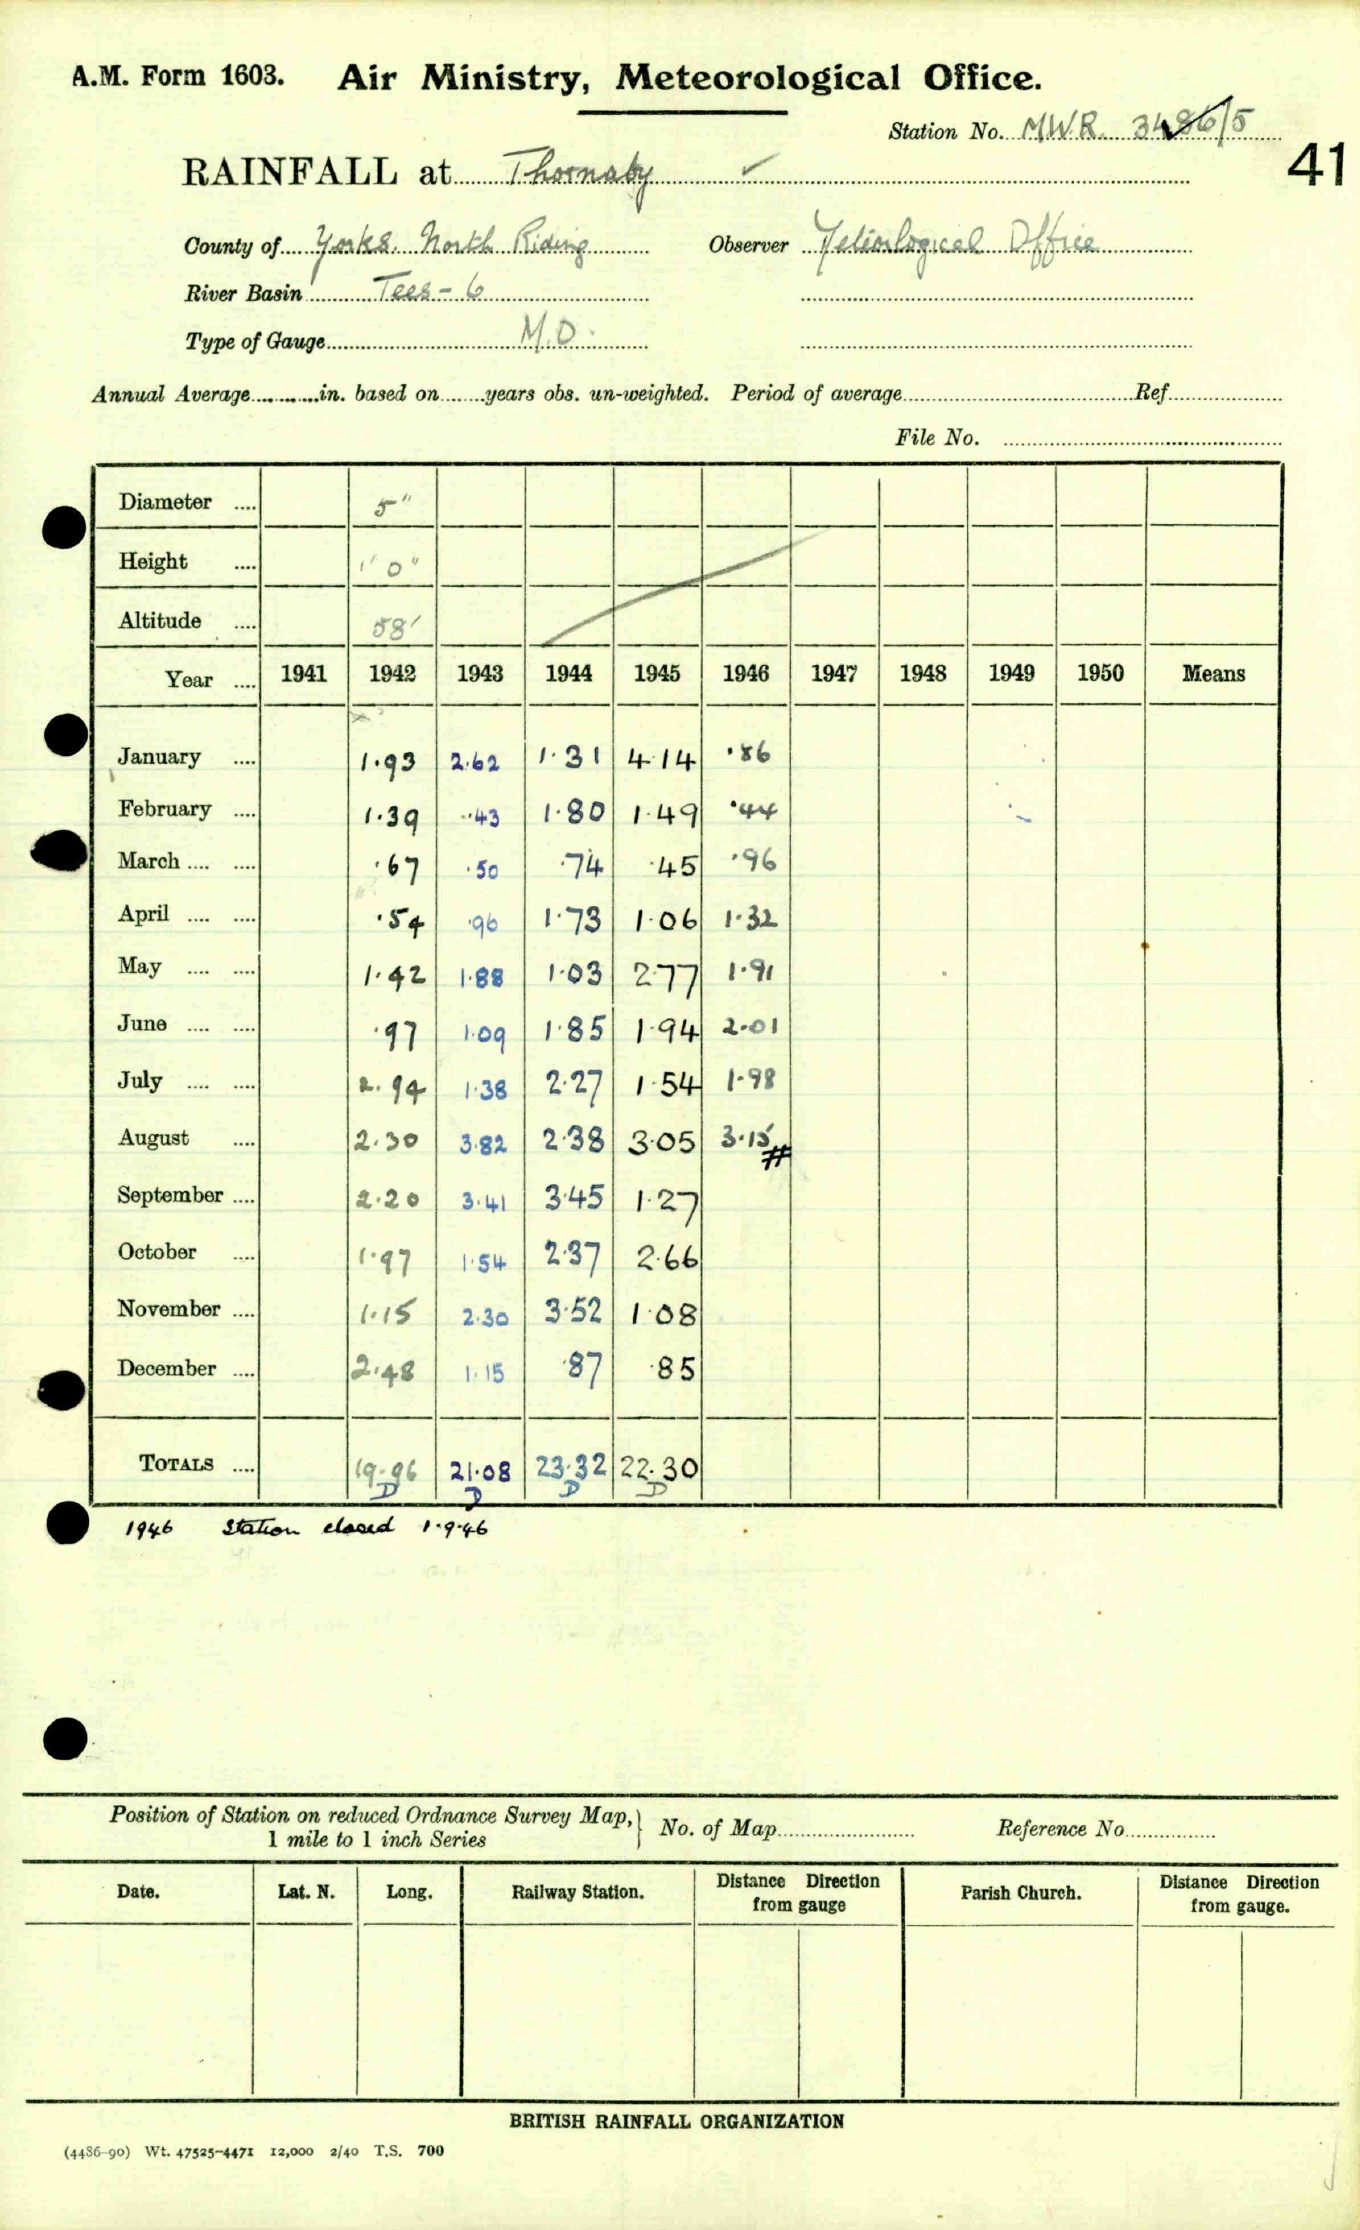 A.M. Form 1603. Air Ministry, Meteorological Office.
Station No. M.W.R. 3486/5
41
RAINFALL at Thornaby ✓
County of Yorks. North Riding Observer Meteorological Office
River Basin Tees - 6
Type of Gauge M.O.
Annual Average in. based on years obs. un-weighted. Period of average Ref
File No.
Diameter 5"
Height 1' 0"
Altitude 58'
Year 1941 1942 1943 1944 1945 1946 1947 1948 1949 1950 Means
January 1.93 2.62 1.31 4.14 .86
February 1.39 .43 1.80 1.49 .44
March .67 .50 .74 .45 .96
April .54 .96 1.73 1.06 1.32
May 1.42 1.88 1.03 2.77 1.91
June .97 1.09 1.85 1.94 2.01
July 2.94 1.38 2.27 1.54 1.98
August 2.30 3.82 2.38 3.05 3.15 #
September 2.20 3.41 3.45 1.27
October 1.97 1.54 2.37 2.66
November 1.15 2.30 3.52 1.08
December 2.48 1.15 .87 .85
TOTALS 19.96 21.08 23.32 22.30
D D D D
1946 Station closed 1.9.46
Position of Station on reduced Ordnance Survey Map, 1 mile to 1 inch Series } No. of Map Reference No
Date. Lat. N. Long. Railway Station. Distance Direction from gauge Parish Church. Distance Direction from gauge.
BRITISH RAINFALL ORGANIZATION
(4486-90) Wt. 47525-4471 12,000 2/40 T.S. 700